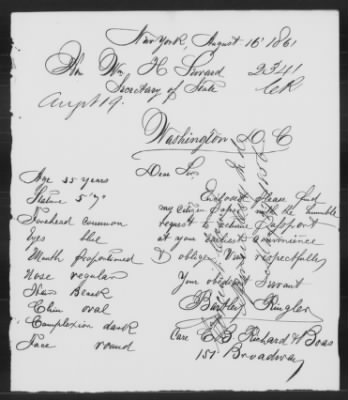 New York, August 16 1861
Hon Wm H Seward 2341
Secretary of State
Augt 19.
Washington D. C
Dear Sir,
Enclosed please find
my citizen paper with the humble
request to return passport
at your earliest convenience
& oblige Very respectfully
Your obedient Servant
Bartley Ringler
Care C. B. Richard & Boas
151 Broadway
Age 35 years
Stature 5 "7"
Forehead common
Eyes blue
Mouth proportioned
Nose regular
Hair
Chin oval
Complexion dark
Face round